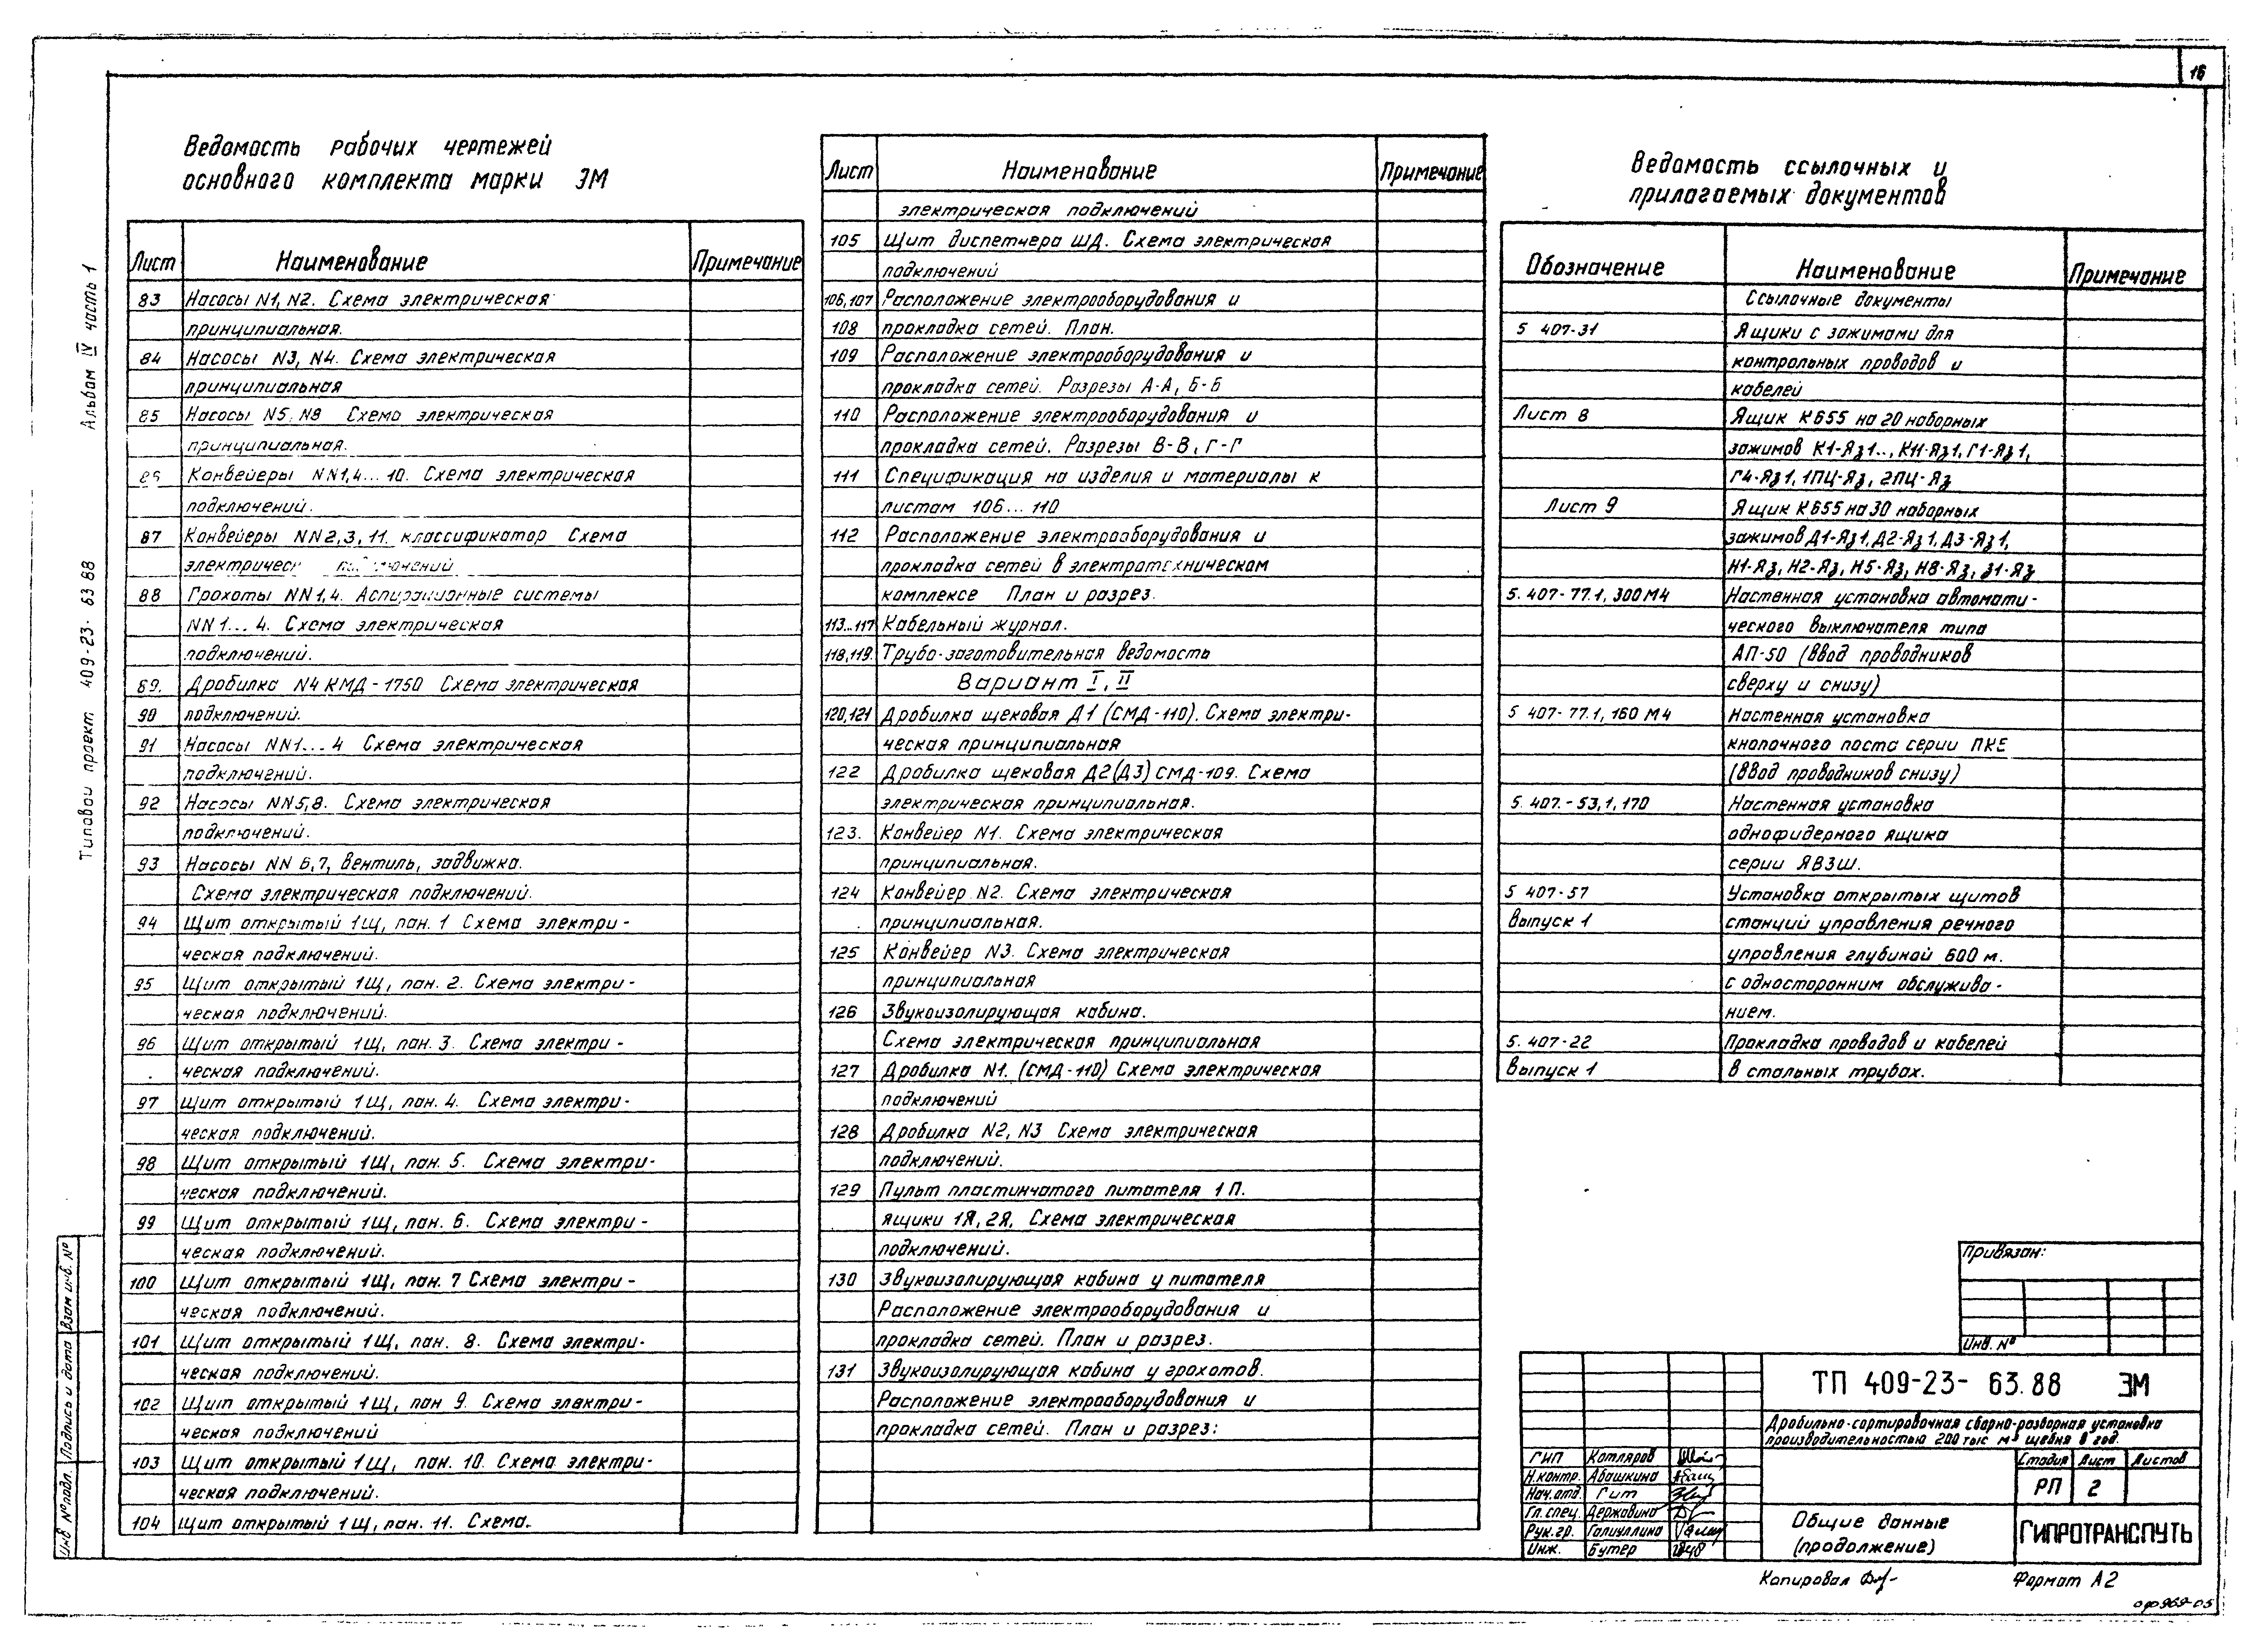 16
Альбом IV часть 1
Типовой проект 409-23-63.88
Ведомость рабочих чертежей
основного комплекта марки ЭМ
Лист Наименование Примечание
83 Насосы N1, N2. Схема электрическая
принципиальная.
84 Насосы N3, N4. Схема электрическая
принципиальная
85 Насосы N5, N8 Схема электрическая
принципиальная.
86 Конвейеры NN1,4...10. Схема электрическая
подключений.
87 Конвейеры NN2,3,11. классификатор Схема
электрическ подключений
88 Грохоты NN1,4. Аспирационные системы
NN1...4. Схема электрическая
подключений.
89. Дробилка N4 КМД-1750 Схема электрическая
90 подключений.
91 Насосы NN1...4 Схема электрическая
подключений.
92 Насосы NN5,8. Схема электрическая
подключений.
93 Насосы NN 6,7, вентиль, задвижка.
Схема электрическая подключений.
94 Щит открытый 1Щ, пан. 1 Схема электри-
ческая подключений.
95 Щит открытый 1Щ, пан. 2. Схема электри-
ческая подключений.
96 Щит открытый 1Щ, пан. 3. Схема электри-
ческая подключений.
97 Щит открытый 1Щ, пан. 4. Схема электри-
ческая подключений.
98 Щит открытый 1Щ, пан. 5. Схема электри-
ческая подключений.
99 Щит открытый 1Щ, пан. 6. Схема электри-
ческая подключений.
100 Щит открытый 1Щ, пан. 7 Схема электри-
ческая подключений.
101 Щит открытый 1Щ, пан. 8. Схема электри-
ческая подключений.
102 Щит открытый 1Щ, пан 9. Схема электри-
ческая подключений
103 Щит открытый 1Щ, пан. 10. Схема электри-
ческая подключений.
104 Щит открытый 1Щ, пан. 11. Схема.
Лист Наименование Примечание
электрическая подключений
105 Щит диспетчера ЩД. Схема электрическая
подключений
106,107 Расположение электрооборудования и
108 прокладка сетей. План.
109 Расположение электрооборудования и
прокладка сетей. Разрезы А-А, Б-Б
110 Расположение электрооборудования и
прокладка сетей. Разрезы В-В, Г-Г
111 Спецификация на изделия и материалы к
листам 106...110
112 Расположение электрооборудования и
прокладка сетей в электротехническом
комплексе План и разрез.
113...117 Кабельный журнал.
118,119. Трубо-заготовительная ведомость
Вариант I, II
120,121 Дробилка щековая Д1 (СМД-110). Схема электри-
ческая принципиальная
122 Дробилка щековая Д2(Д3) СМД-109. Схема
электрическая принципиальная.
123. Конвейер N1. Схема электрическая
принципиальная.
124 Конвейер N2. Схема электрическая
принципиальная.
125 Конвейер N3. Схема электрическая
принципиальная
126 Звукоизолирующая кабина.
Схема электрическая принципиальная
127 Дробилка N1. (СМД-110) Схема электрическая
подключений
128 Дробилка N2, N3 Схема электрическая
подключений.
129 Пульт пластинчатого питателя 1П.
ящики 1Я, 2Я, Схема электрическая
подключений.
130 Звукоизолирующая кабина у питателя
Расположение электрооборудования и
прокладка сетей. План и разрез.
131 Звукоизолирующая кабина у грохотов.
Расположение электрооборудования и
прокладка сетей. План и разрез:
Ведомость ссылочных и
прилагаемых документов
Обозначение Наименование Примечание
Ссылочные документы
5 407-31 Ящики с зажимами для
контрольных проводов и
кабелей
Лист 8 Ящик К655 на 20 наборных
зажимов К1-Яз1.., К11-Яз1, Г1-Яз1,
Г4-Яз1, 1ПЦ-Яз, 2ПЦ-Яз
Лист 9 Ящик К655 на 30 наборных
зажимов Д1-Яз1, Д2-Яз1, Д3-Яз1,
Н1-Яз, Н2-Яз, Н5-Яз, Н8-Яз, з1-Яз
5. 407-77.1, 300М4 Настенная установка автомати-
ческого выключателя типа
АП-50 (ввод проводников
сверху и снизу)
5 407-77.1, 160 М4 Настенная установка
кнопочного поста серии ПКЕ
(ввод проводников снизу)
5. 407.-53,1,170 Настенная установка
однофидерного ящика
серии ЯВЗШ.
5 407-57 Установка открытых щитов
Выпуск 1 станций управления речного
управления глубиной 600 м.
с односторонним обслужива-
нием.
5. 407-22 Прокладка проводов и кабелей
Выпуск 1 в стальных трубах.
Привязан:
Инв. №
ТП 409-23-63.88 ЭМ
Дробильно-сортировочная сборно-разборная установка
производительностью 200 тыс м³ щебня в год.
ГИП Котляров
Н.контр. Абашкина
Нач.отд. Гит
Гл.спец. Державина
Рук.гр. Галиуллина
Инж. Бутер
Стадия Лист Листов
РП 2
Общие данные
(продолжение)
ГИПРОТРАНСПУТЬ
Копировал
Формат А2
Инв № подл. Подпись и дата Взам инв. №